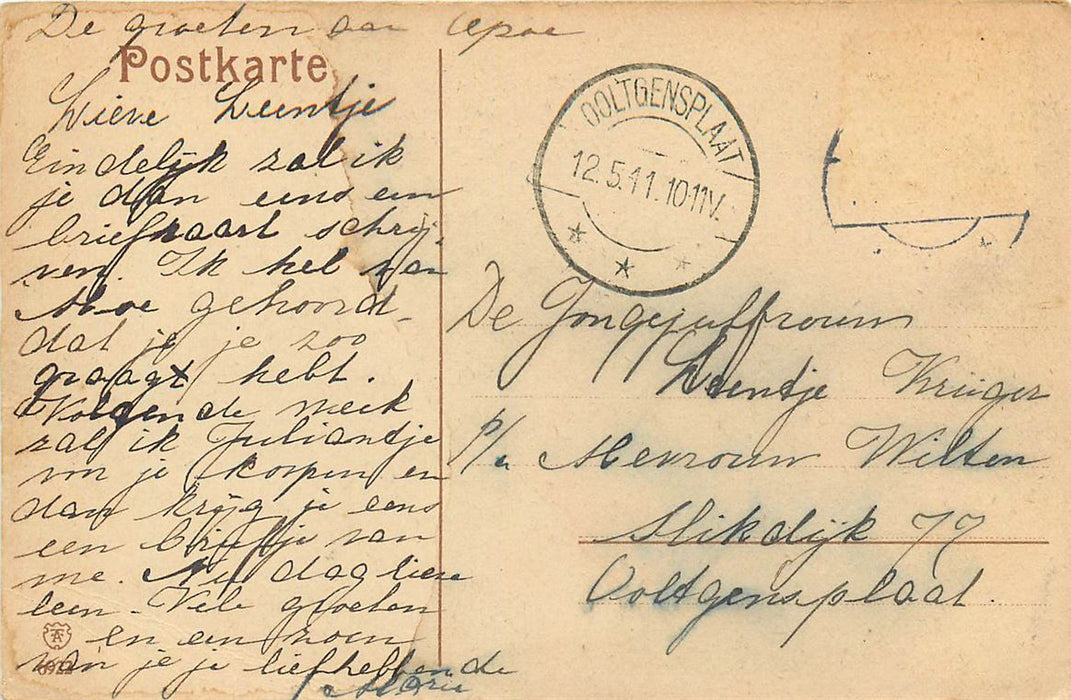 De groeten van Opoe
Postkarte
Lieve Leentje
Eindelijk zal ik
je dan eens een
briefkaart schrij-
ven. Ik heb van
Moe gehoord
dat je je zoo
graagt hebt.
Volgende week
zal ik Juliantje
van je koopen en
dan krijg je eens
een briefje van
me. Nu dag lieve
leen. Vele groeten
en een zoen
van je je liefhebbende
Marie
6922
OOLTGENSPLAAT
12.5.11.10-11V.
De Jongejuffrouw
Leentje Krüger
p/a Mevrouw Wilten
Slikdijk 77
Ooltgensplaat.